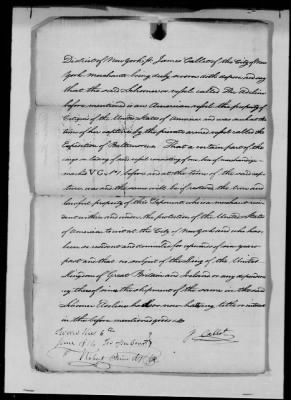 District of New York ss. James Callot of the City of New
York merchant being duly sworn doth depose and say
that the said Schooner or vessel called The Rosliné
before mentioned is an American vessel the property of
Citizens of the United States of America and was such at the
time of her capture by the private armed vessel called the
Expedition of Baltimore. That a certain part of the
cargo or lading of said vessel consisting of one box of merchandize
marked VG. No. 1, before and at the time of the said cap
ture was and the same will be if restored the true and
lawful property of this Deponent who is a merchant resi
dent within and under the protection of the United States
of America to wit at the City of New York and who has
been so resident and domiciled for upwards of six years
past and that no subject of the King of the United
Kingdom of Great Britain and Ireland or any dependency
thereof is or the shipment of the same in the said
Schooner Rosline had or now hath any title or interest
in the before mentioned goods
Sworn this 6th
June 1814 In open Court
J. Callot
Robert